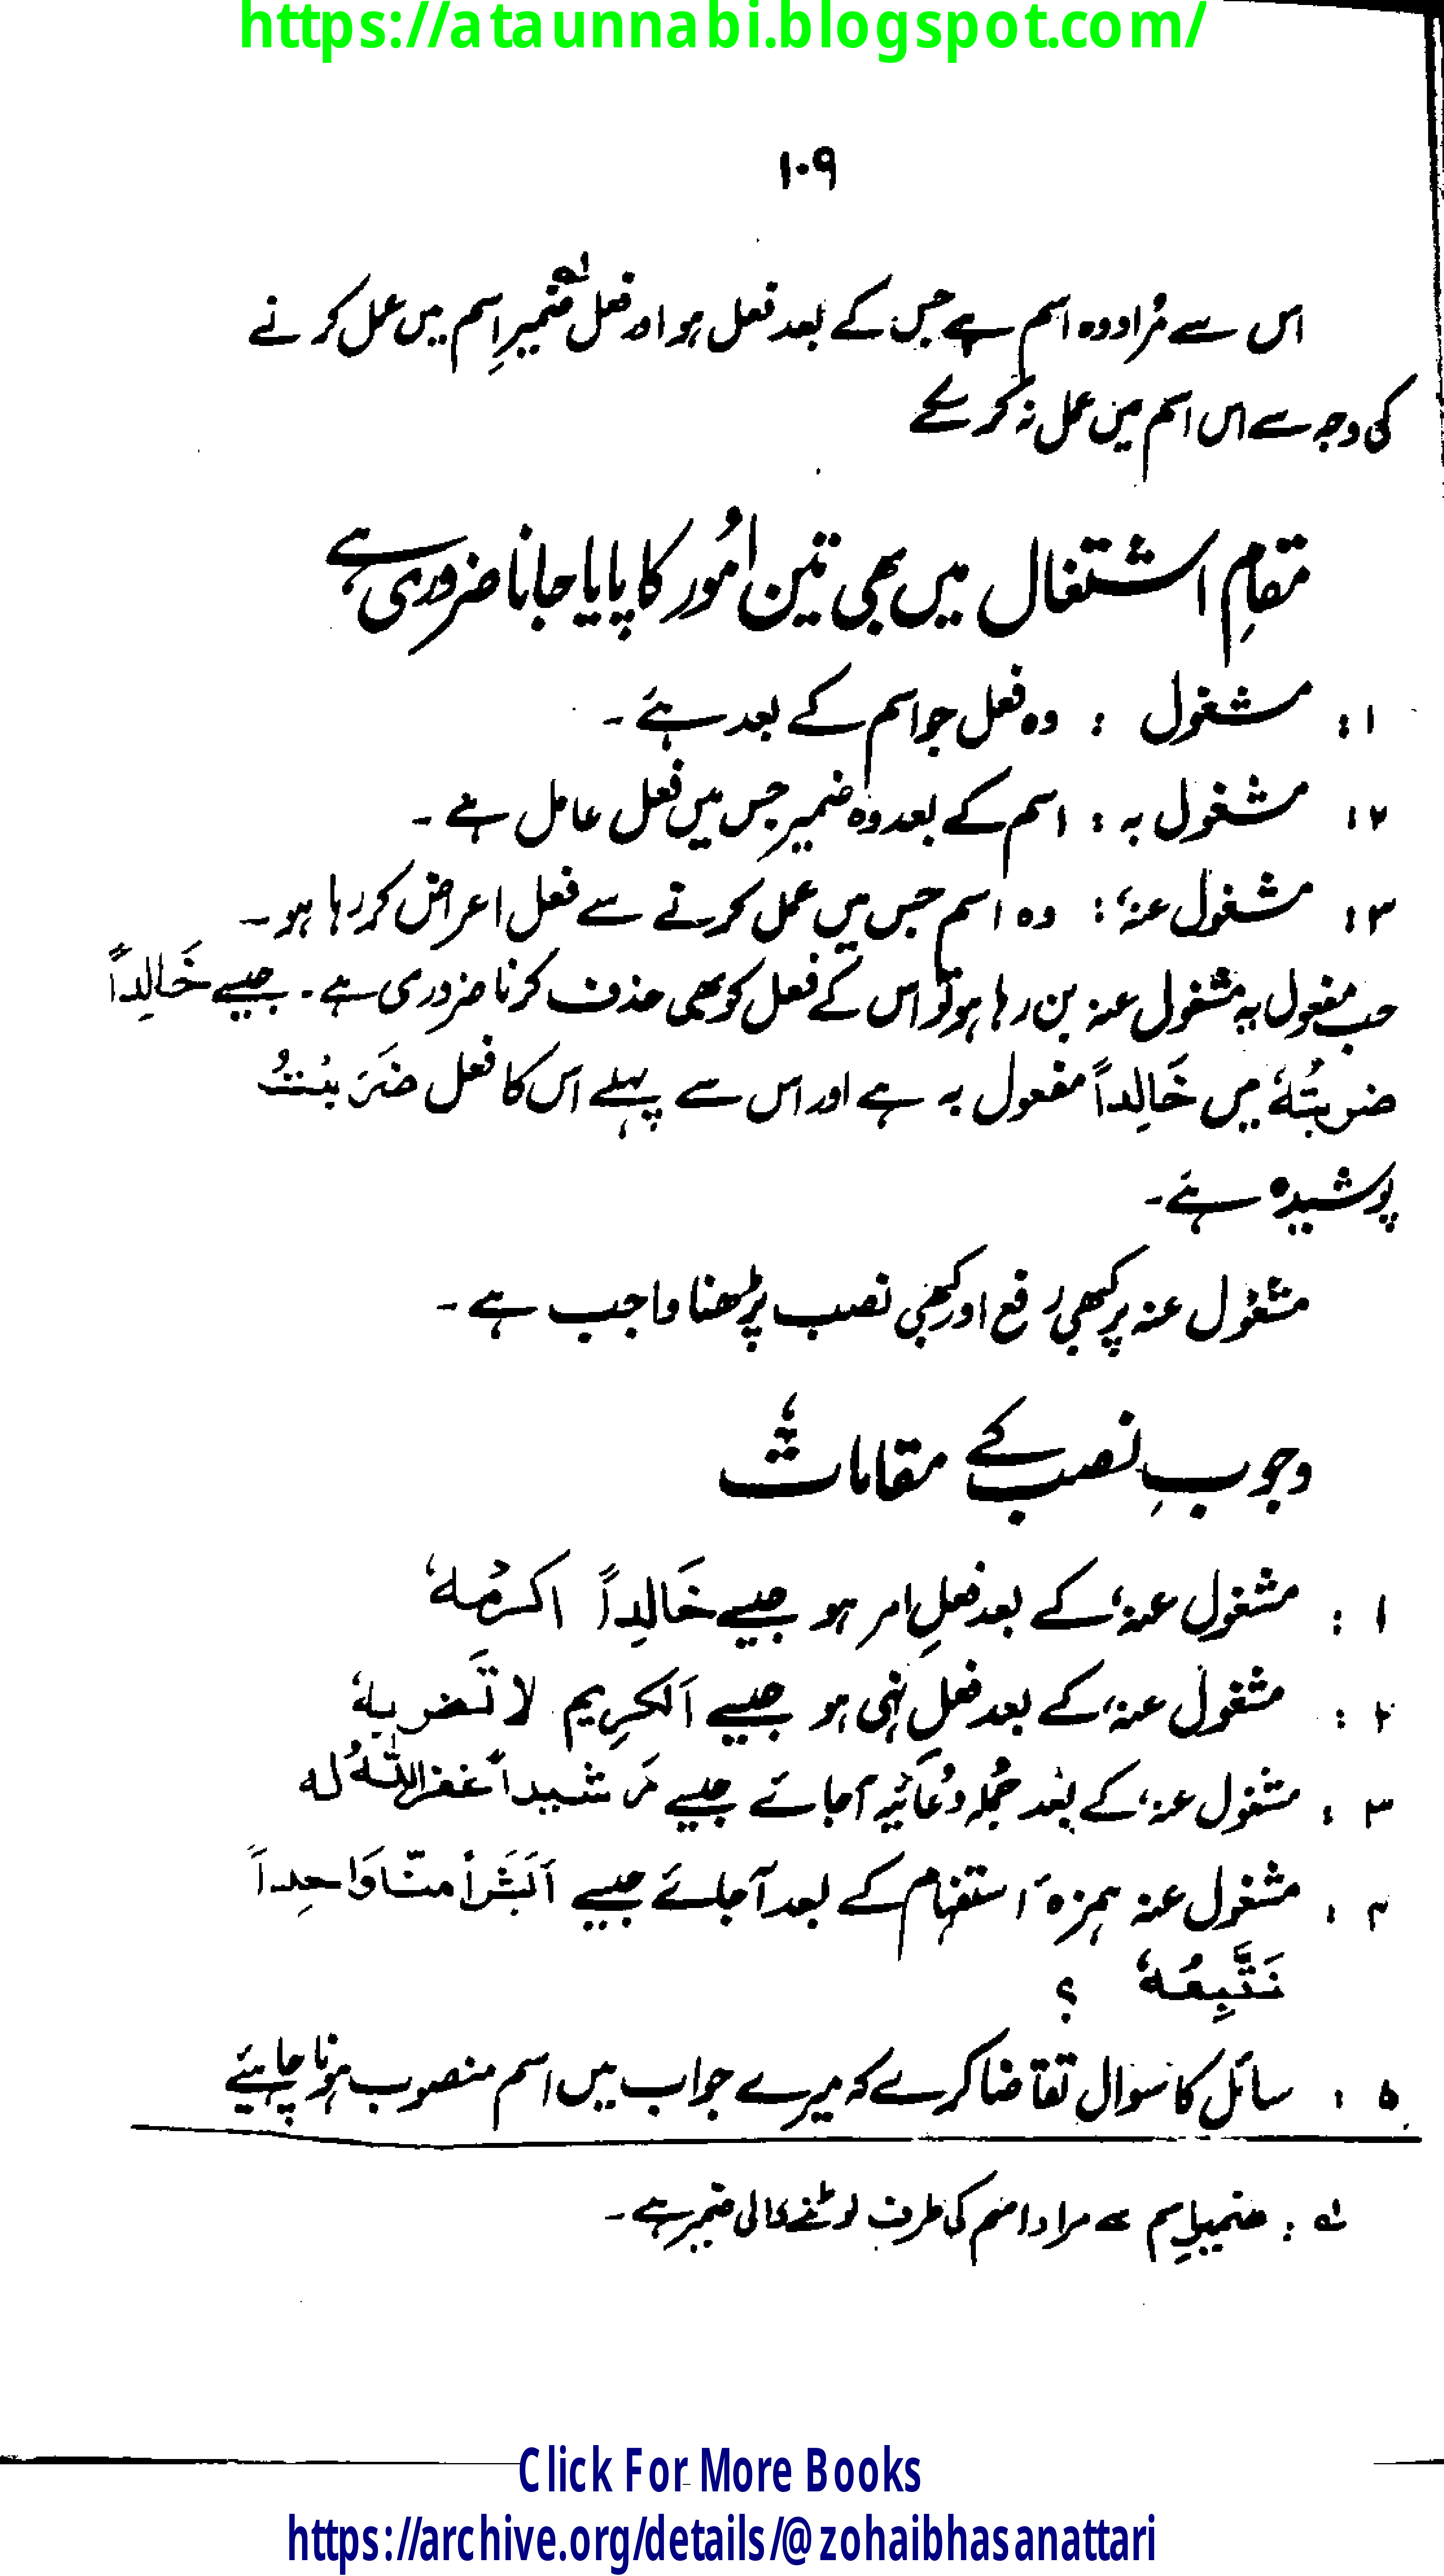 https://ataunnabi.blogspot.com/
۱۰۹
اس سے مُراد وہ اسم ہے جس کے بعد فعل ہو اور فعل ضمیرِ اسم میں عمل کرنے
کی وجہ سے اس اسم میں عمل نہ کر سکے
مقامِ اشتغال میں بھی تین اُمور کا پایا جانا ضروری ہے
۱: مشغول : وہ فعل جو اسم کے بعد ہے ۔
۲: مشغول بہ : اسم کے بعد وہ ضمیر جس میں فعل عامل ہے ۔
۳: مشغول عنہٗ : وہ اسم جس میں عمل کرنے سے فعل اعراض کر رہا ہو ۔
جب مفعول بہٖ مشغول عنہ بن رہا ہو تو اس کے فعل کو بھی حذف کرنا ضروری ہے ۔ جیسے خَالِداً
ضربتُہٗ میں خَالِداً مفعول بہ ہے اور اس سے پہلے اس کا فعل ضَرَبْتُ
پوشیدہ ہے ۔
مشغول عنہ پر کبھی رفع اور کبھی نصب پڑھنا واجب ہے ۔
وجوبِ نصب کے مقامات
۱ : مشغول عنہٗ کے بعد فعلِ امر ہو جیسے خَالِداً اکرمْہٗ
۲ : مشغول عنہٗ کے بعد فعلِ نہی ہو جیسے اَلکرِیم لا تَضربہٗ
۳ : مشغول عنہٗ کے بعد جُملہ دُعائیہ آجائے جیسے رَشیداً غفر اللّٰہُ لہ
۴ : مشغول عنہ ہمزہ استفہام کے بعد آجائے جیسے اَبَشَراً منّا وَاحِداً
نَتَّبِعُہٗ ؟
۵ : سائل کا سوال تقاضا کرے کہ میرے جواب میں اسم منصوب ہونا چاہیئے
لہ : ضمیرِ اسم سے مراد اسم کی طرف لوٹنے والی ضمیر ہے ۔
Click For More Books
https://archive.org/details/@zohaibhasanattari